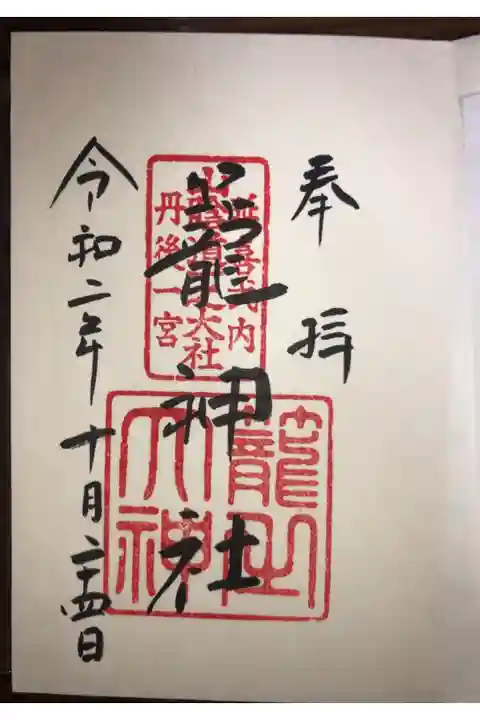 奉拝
延喜式内
山陰道一大社
丹後一宮
籠神社
籠之大神
令和二年十月二十四日